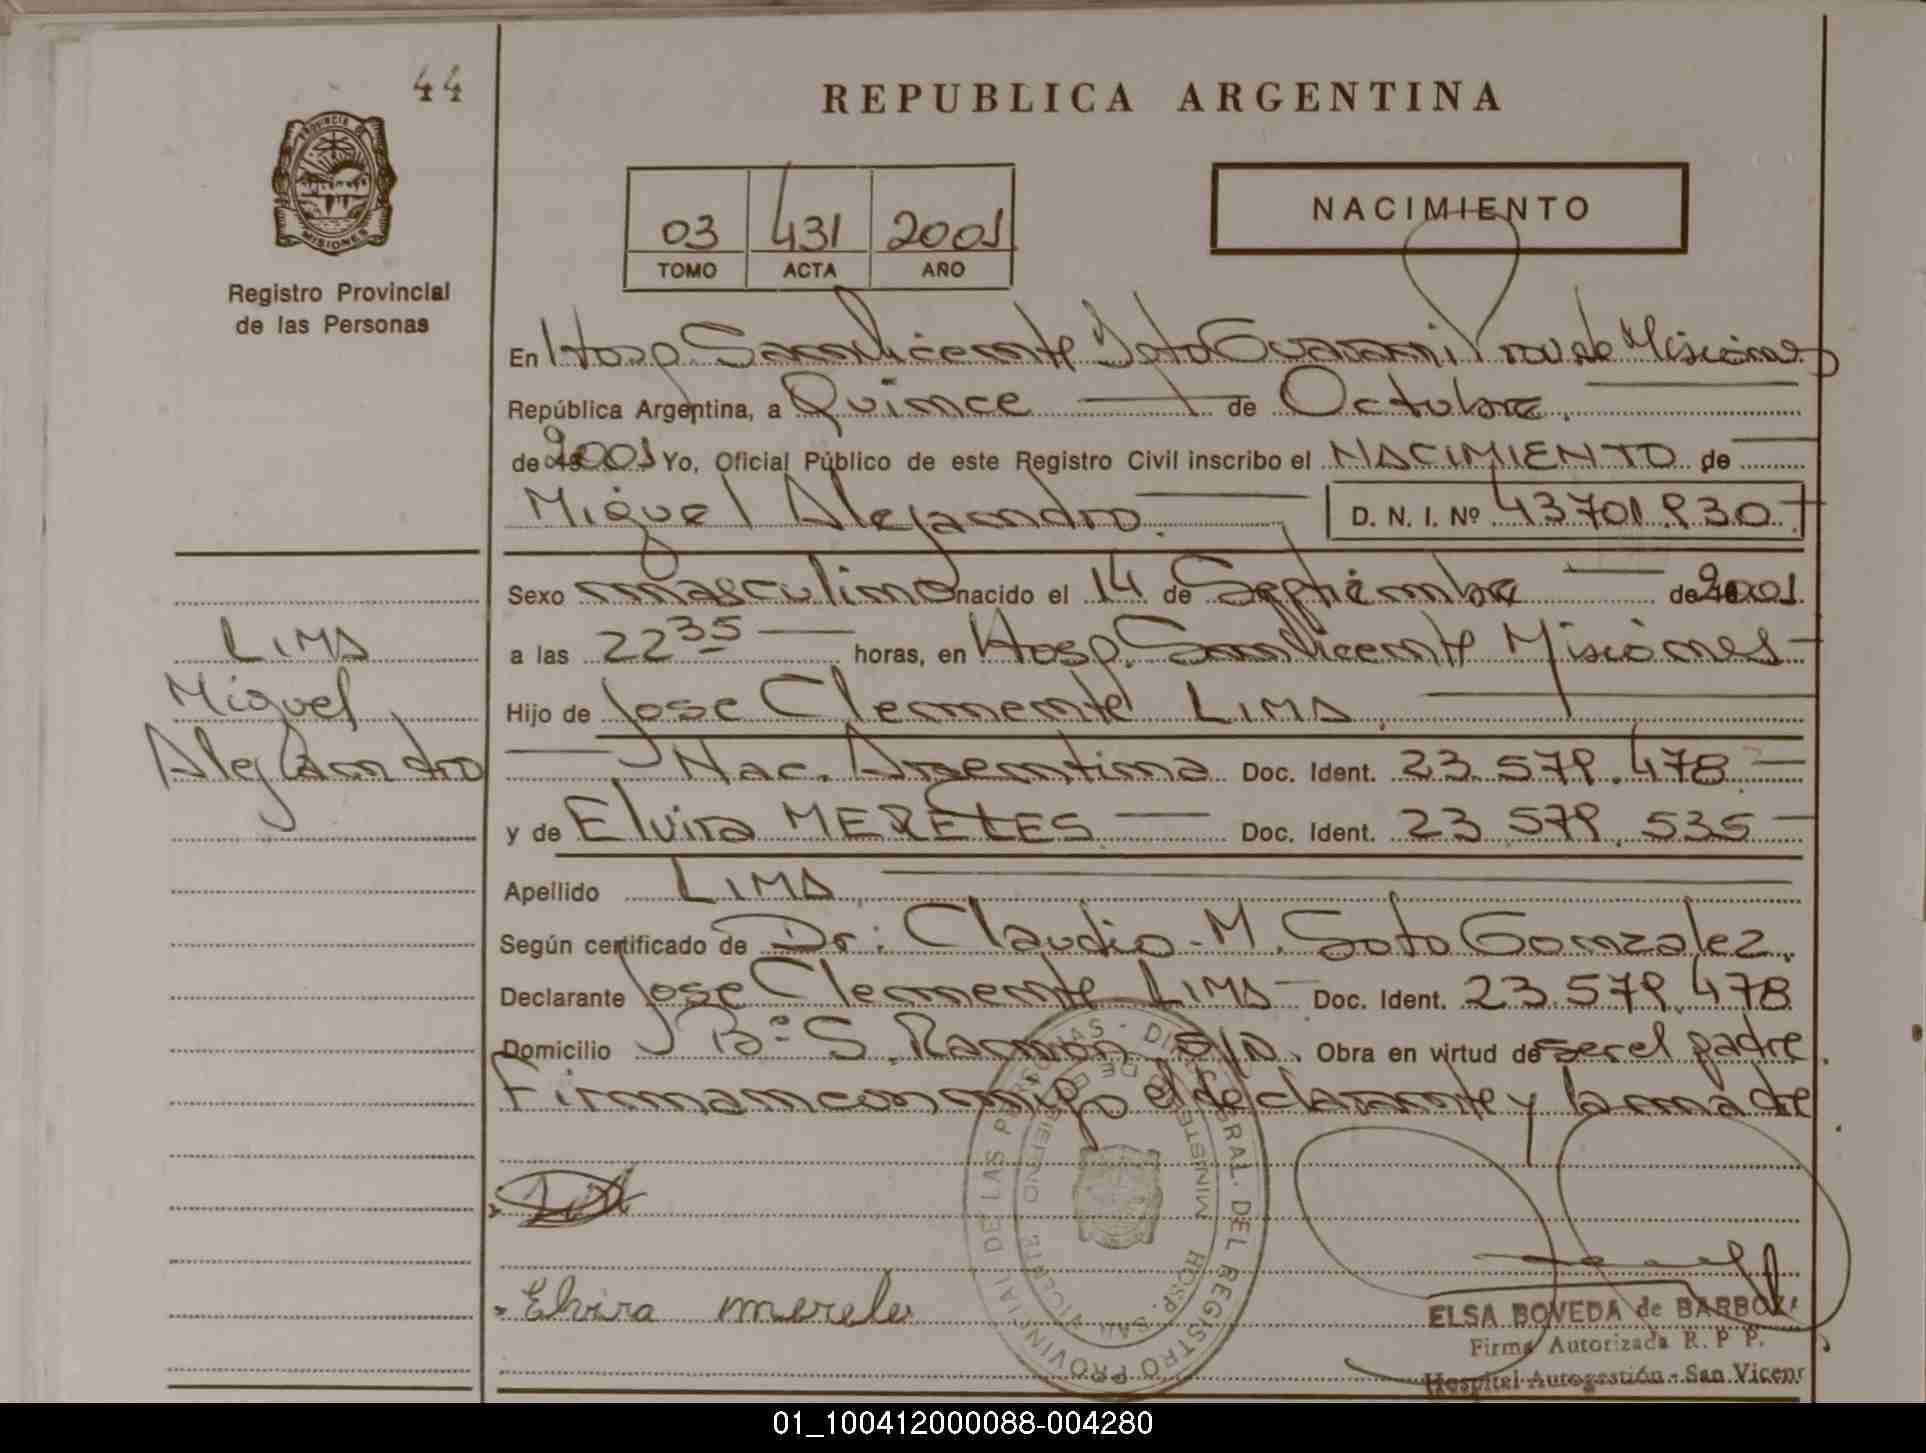 44
REPUBLICA ARGENTINA
PROVINCIA DE
MISIONES
Registro Provincial
de las Personas
03 431 2001
TOMO ACTA AÑO
NACIMIENTO
En Hosp San Vicente Dpto Guarani Prov de Misiones
República Argentina, a Quince de Octubre
de 2001 Yo, Oficial Público de este Registro Civil inscribo el NACIMIENTO de
Miguel Alejandro. D. N. I. Nº 43701930
Sexo masculino nacido el 14 de Septiembre de 2001
a las 22 35 horas, en Hosp. San Vicente Misiones
LIMA
Miguel
Alejandro
Hijo de Jose Clemente LIMA.
Nac. Argentina Doc. Ident. 23.579.478
y de Elvira MERELES Doc. Ident. 23.579.535
Apellido LIMA
Según certificado de Dr. Claudio M. Soto Gonzalez.
Declarante Jose Clemente LIMA Doc. Ident. 23.579.478
Domicilio Bº S. Ramon s/n. Obra en virtud de ser el padre.
Firman conmigo el declarante y la madre
Elvira merele
DIRECCION GRAL. DEL REGISTRO PROVINCIAL DE LAS PERSONAS
MINISTERIO DE GOBIERNO
HOSP. SAN VICENTE
ELSA BOVEDA de BARBOZA
Firma Autorizada R. P. P.
Hospital Autogestión - San Vicent
01_100412000088-004280